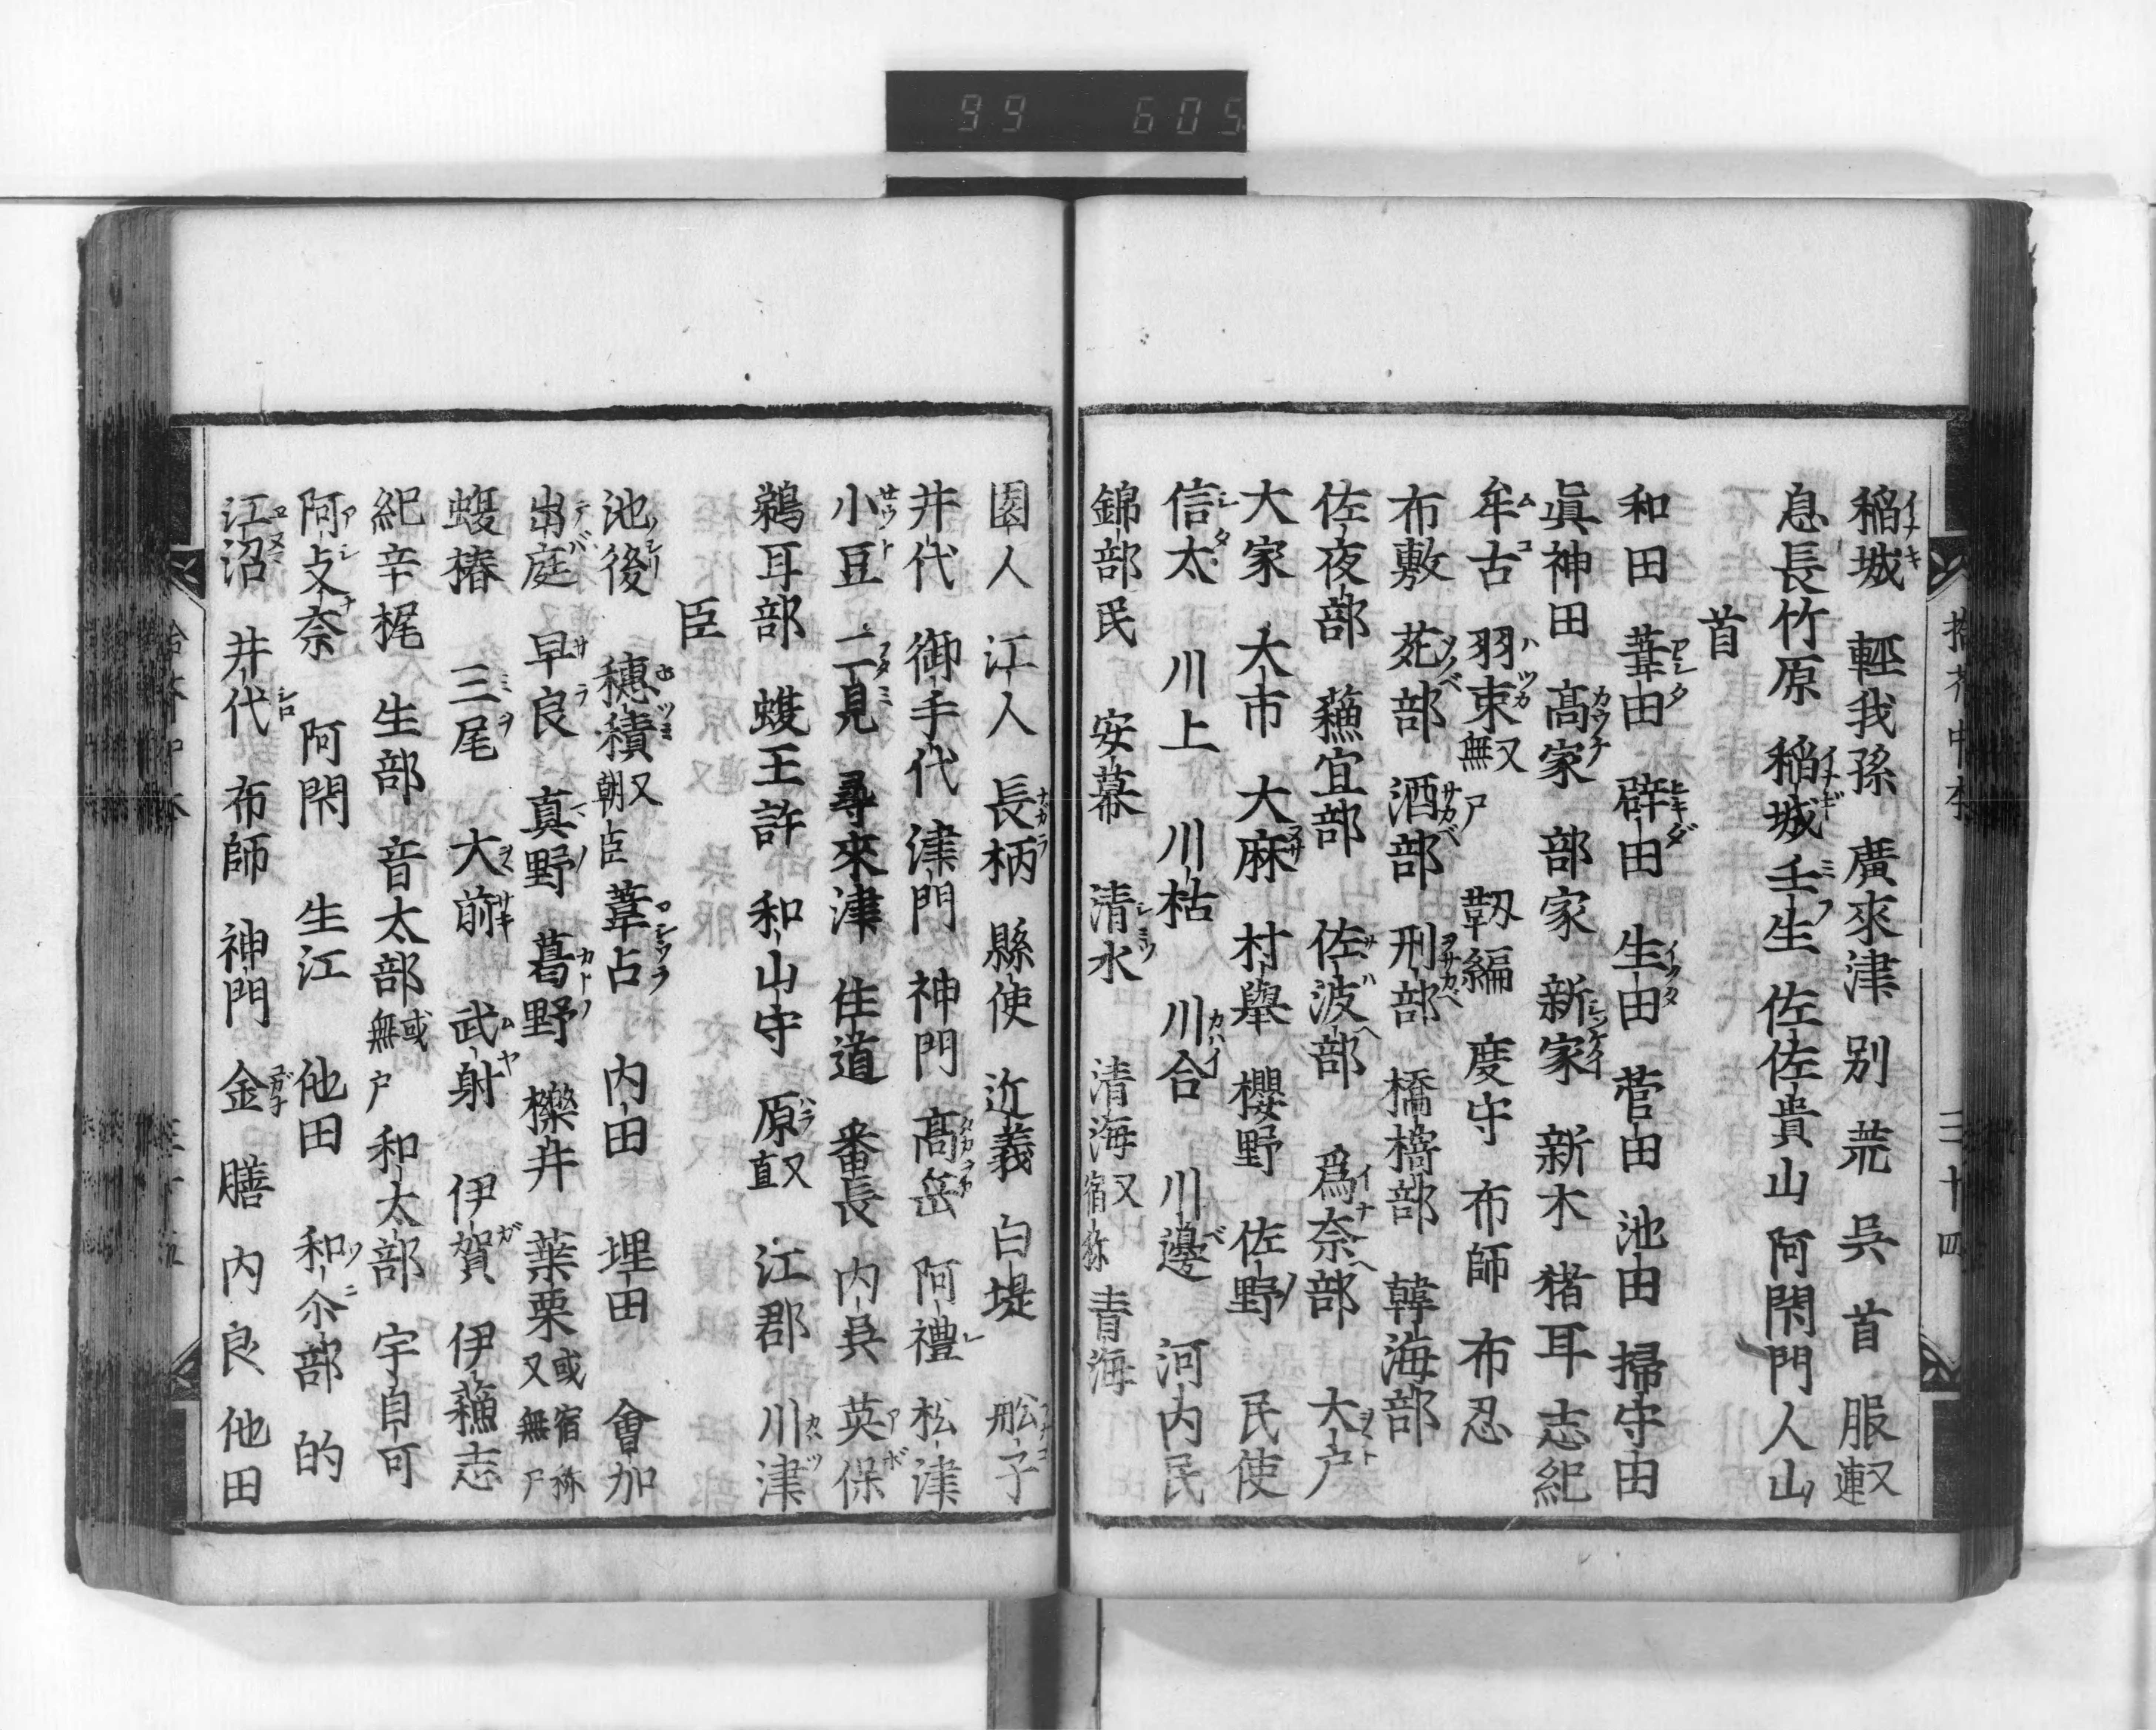 99 605
稲城 輕我孫 廣來津 別 荒 呉 首 服又連
息長竹原 稲城壬生 佐佐貴山 阿閇門人山
首
和田 葦田 辟田 生田 菅田 池田 掃守田
眞神田 髙家 部家 新家 新木 猪耳 志紀
牟古 羽束又無尸 靱編 度守 布師 布忍
布敷 苑部 酒部 刑部 橋樢部 韓海部
佐夜部 蘓宜部 佐波部 爲奈部 大戸
大家 大市 大麻 村擧 櫻野 佐野 民使
信太 川上 川枯 川合 川邊 河内民
錦部民 安幕 清水 清海又宿祢 青海
園人 江人 長柄 縣使 近義 白堤 舩子
井代 御手代 津門 神門 髙岳 阿禮 松津
小豆 二見 尋來津 住道 番長 内呉 英保
鵜耳部 蝮王許 和山守 原又直 江郡 川津
臣
池後 穗積又朝臣 葦占 内田 埋田 會加
出庭 早良 真野 葛野 櫟井 葉栗或宿祢又無尸
蝮椿 三尾 大前 武射 伊賀 伊蘓志
紀辛梶 生部 音太部或無戸 和太部 宇自可
阿支奈 阿閇 生江 他田 和尒部的
江沼 井代 布師 神門 金 膳 内 良 他田